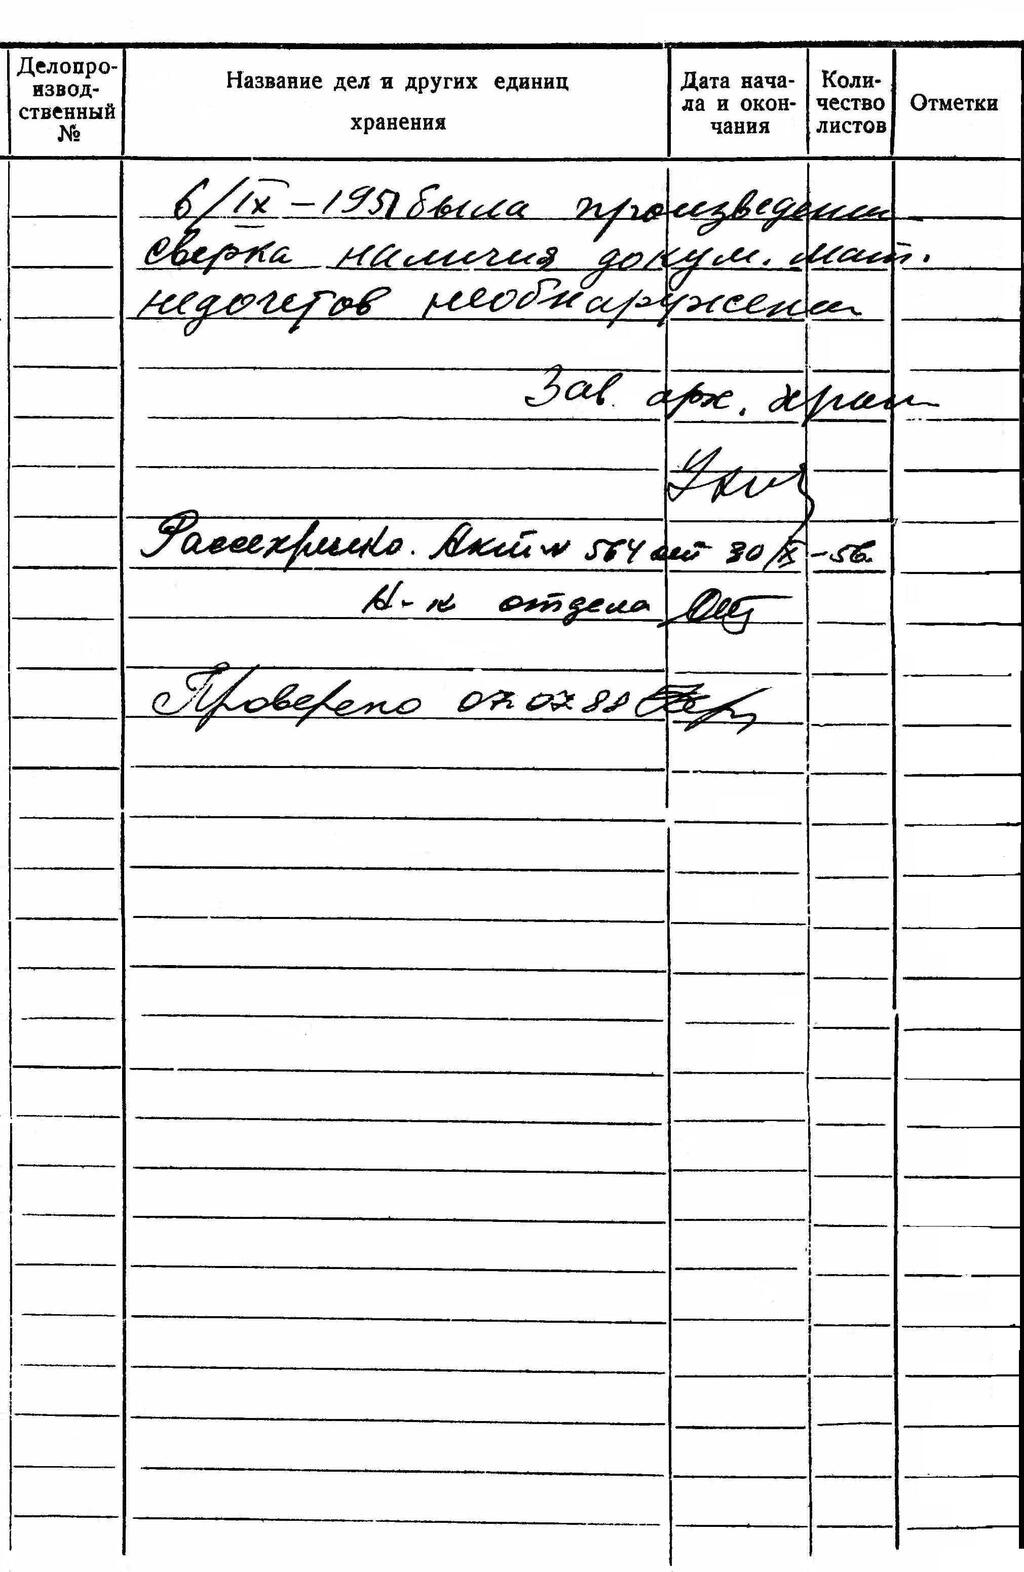 Делопро-
извод-
ственный
№
Название дел и других единиц
хранения
Дата нача-
ла и окон-
чания
Коли-
чество
листов
Отметки
6/IX – 1951 была произведена
сверка наличия докум. мат.
недочетов необнаружено
Зав. арх. хран
Рассекречено. Акт № 564 от 30/IX – 56.
Н-к отдела
Проверено 07.07.88